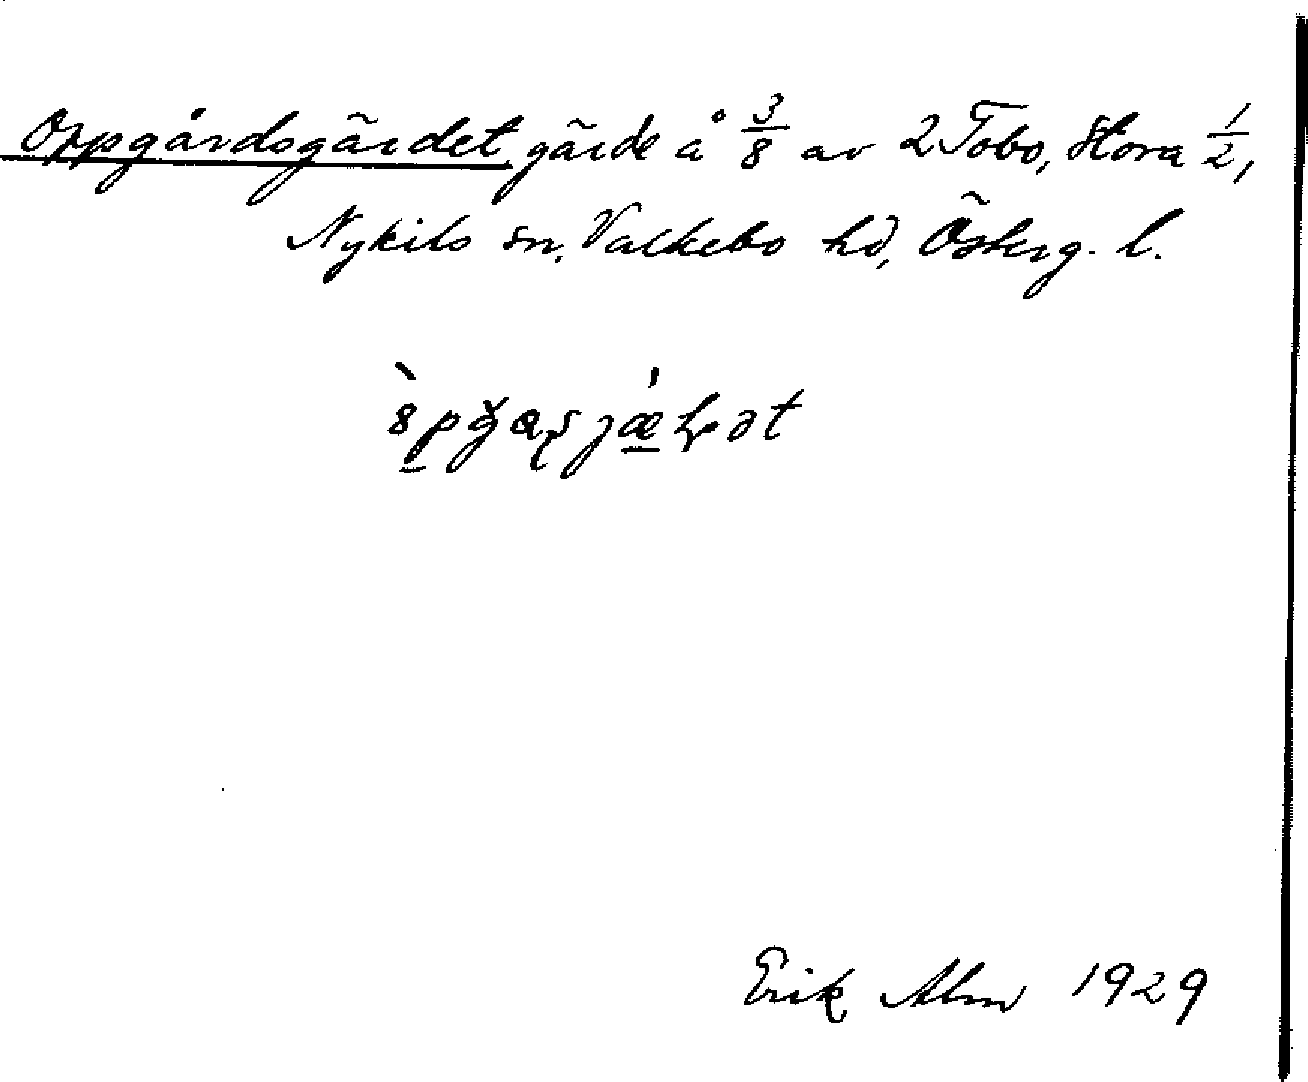 Oppgårdsgärdet, gärde å 3/8 av 2 Tobo, Stora 1/2,
Nykils sn, Valkebo hd, Österg. l.
Erik Alm 1929